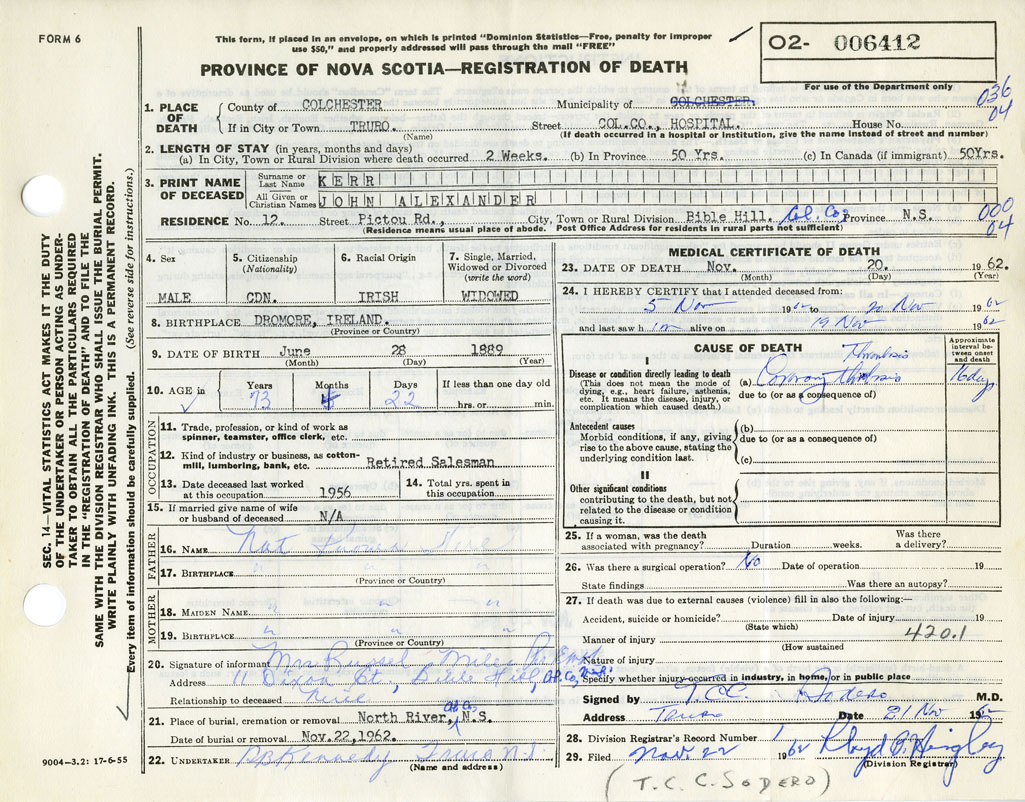 FORM 6
This form, if placed in an envelope, on which is printed "Dominion Statistics—Free, penalty for improper
use $50," and properly addressed will pass through the mail "FREE"
O2- 006412
PROVINCE OF NOVA SCOTIA—REGISTRATION OF DEATH
For use of the Department only
036
04
1. PLACE OF DEATH
County of COLCHESTER Municipality of COLCHESTER
If in City or Town TRURO. Street COL.CO., HOSPITAL. House No.
(Name) (If death occurred in a hospital or institution, give the name instead of street and number)
2. LENGTH OF STAY (in years, months and days)
(a) In City, Town or Rural Division where death occurred 2 Weeks. (b) In Province 50 Yrs. (c) In Canada (if immigrant) 50Yrs.
3. PRINT NAME OF DECEASED
Surname or Last Name KERR
All Given or Christian Names JOHN ALEXANDER
RESIDENCE No. 12. Street Pictou Rd., City, Town or Rural Division Bible Hill. Col. Co, Province N.S.
000
04
(Residence means usual place of abode. Post Office Address for residents in rural parts not sufficient)
4. Sex
MALE
5. Citizenship
(Nationality)
CDN.
6. Racial Origin
IRISH
7. Single, Married,
Widowed or Divorced
(write the word)
WIDOWED
8. BIRTHPLACE DROMORE, IRELAND.
(Province or Country)
9. DATE OF BIRTH June 28 1889
(Month) (Day) (Year)
10. AGE in Years Months Days If less than one day old
73 4 22 hrs. or min.
OCCUPATION
11. Trade, profession, or kind of work as
spinner, teamster, office clerk, etc.
12. Kind of industry or business, as cotton-
mill, lumbering, bank, etc. Retired Salesman
13. Date deceased last worked
at this occupation 1956
14. Total yrs. spent in
this occupation
15. If married give name of wife
or husband of deceased N/A
FATHER
16. NAME Not Known Here
17. BIRTHPLACE " " "
(Province or Country)
MOTHER
18. MAIDEN NAME " " "
19. BIRTHPLACE " " "
(Province or Country)
20. Signature of informant Mrs
Address 11 Dixon Ct., Bible Hill, Col. Co, N.S.
Relationship to deceased Niece
21. Place of burial, cremation or removal North River, Col. Co. N.S.
Date of burial or removal Nov.22,1962.
22. UNDERTAKER Kennedy Truro N.S.
(Name and address)
9004-3.2: 17-6-55
MEDICAL CERTIFICATE OF DEATH
23. DATE OF DEATH Nov. 20. 1962.
(Month) (Day) (Year)
24. I HEREBY CERTIFY that I attended deceased from:
5 Nov 1962 to 20 Nov 1962
and last saw him alive on 19 Nov 1962
CAUSE OF DEATH
Approximate interval between onset and death
I
Disease or condition directly leading to death
(This does not mean the mode of
dying, e.g., heart failure, asthenia,
etc. It means the disease, injury, or
complication which caused death.)
Thrombosis
(a) Coronary thrombosis 16 days
due to (or as a consequence of)
Antecedent causes
Morbid conditions, if any, giving
rise to the above cause, stating the
underlying condition last.
(b)
due to (or as a consequence of)
(c)
II
Other significant conditions
contributing to the death, but not
related to the disease or condition
causing it.
25. If a woman, was the death
associated with pregnancy? Duration weeks. Was there
a delivery?
26. Was there a surgical operation? No Date of operation 19
State findings Was there an autopsy?
27. If death was due to external causes (violence) fill in also the following:—
Accident, suicide or homicide? Date of injury 19
(State which)
420.1
Manner of injury
(How sustained
Nature of injury
Specify whether injury occurred in industry, in home, or in public place
Signed by T.C.C. Sodero M.D.
Address Truro Date 21 Nov 1962
28. Division Registrar's Record Number
29. Filed Nov. 22 1962 Lloyd
(Division Registrar)
(T.C.C. SODERO)
SEC. 14—VITAL STATISTICS ACT MAKES IT THE DUTY
OF THE UNDERTAKER OR PERSON ACTING AS UNDER-
TAKER TO OBTAIN ALL THE PARTICULARS REQUIRED
IN THE "REGISTRATION OF DEATH" AND TO FILE THE
SAME WITH THE DIVISION REGISTRAR WHO SHALL ISSUE THE BURIAL PERMIT.
WRITE PLAINLY WITH UNFADING INK. THIS IS A PERMANENT RECORD.
Every item of information should be carefully supplied. (See reverse side for instructions.)